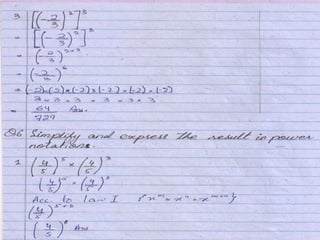 3 [(-2/3)²]³
= [(-2/3)²]³
= (-2/3)²ˣ³
= (-2/3)⁶
= (-2)×(-2)×(-2)×(-2)×(-2)×(-2)
3×3×3×3×3×3
= 64 Ans.
729
Q6 Simplify and express the result in power
notations.
1 (4/5)⁵ × (4/5)³
(4/5)⁵ × (4/5)³
Acc. to law I {xᵐ × xⁿ = xᵐ⁺ⁿ}
(4/5)⁵⁺³
(4/5)⁸ Ans